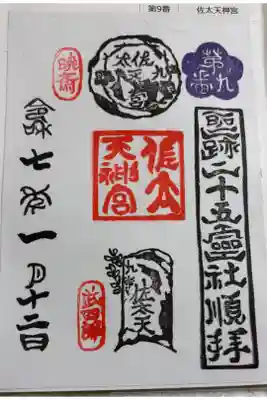 第9番 佐太天神宮
第九番
聖跡二十五霊社順拝
佐太天神宮
暁斎
佐太天神宮
九番
佐太天
令和七年一月十二日